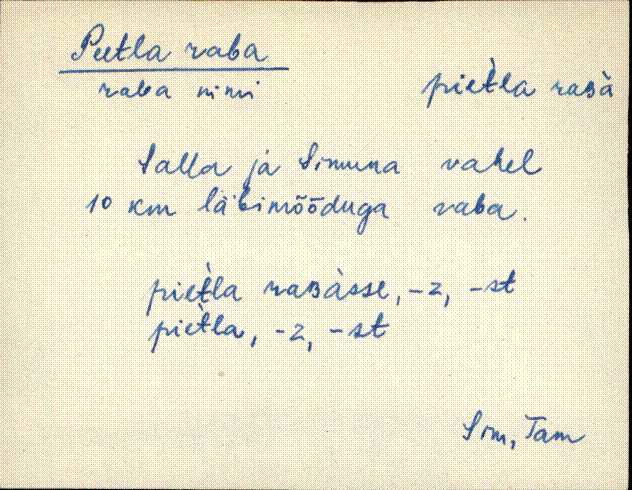 Peetla raba
raba nimi
pìetla raʙà
Salla ja Simuna vahel
10 km läbimõõduga raba.
pìetla raʙàsse, -z, -st
pìetla, -z, -st
Sim, Tam